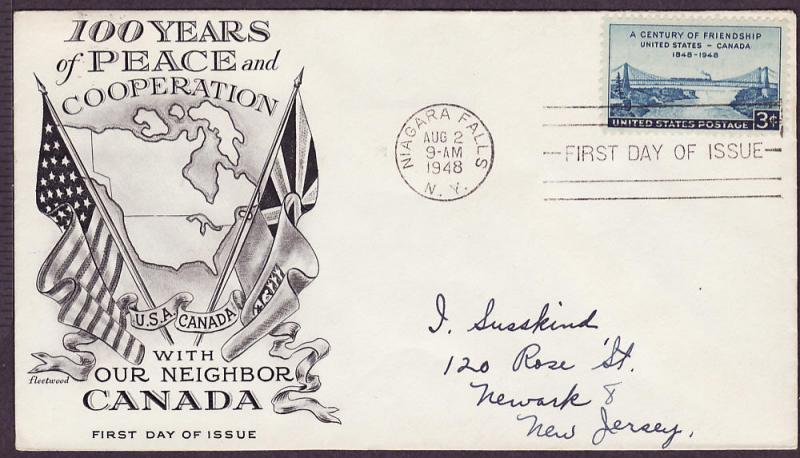 100 YEARS
of PEACE and
COOPERATION
U.S.A. CANADA
WITH
OUR NEIGHBOR
CANADA
fleetwood
FIRST DAY OF ISSUE
NIAGARA FALLS
AUG 2
9-AM
1948
N. Y.
A CENTURY OF FRIENDSHIP
UNITED STATES - CANADA
1848-1948
UNITED STATES POSTAGE 3¢
FIRST DAY OF ISSUE
I. Susskind
120 Rose St.
Newark 8
New Jersey.